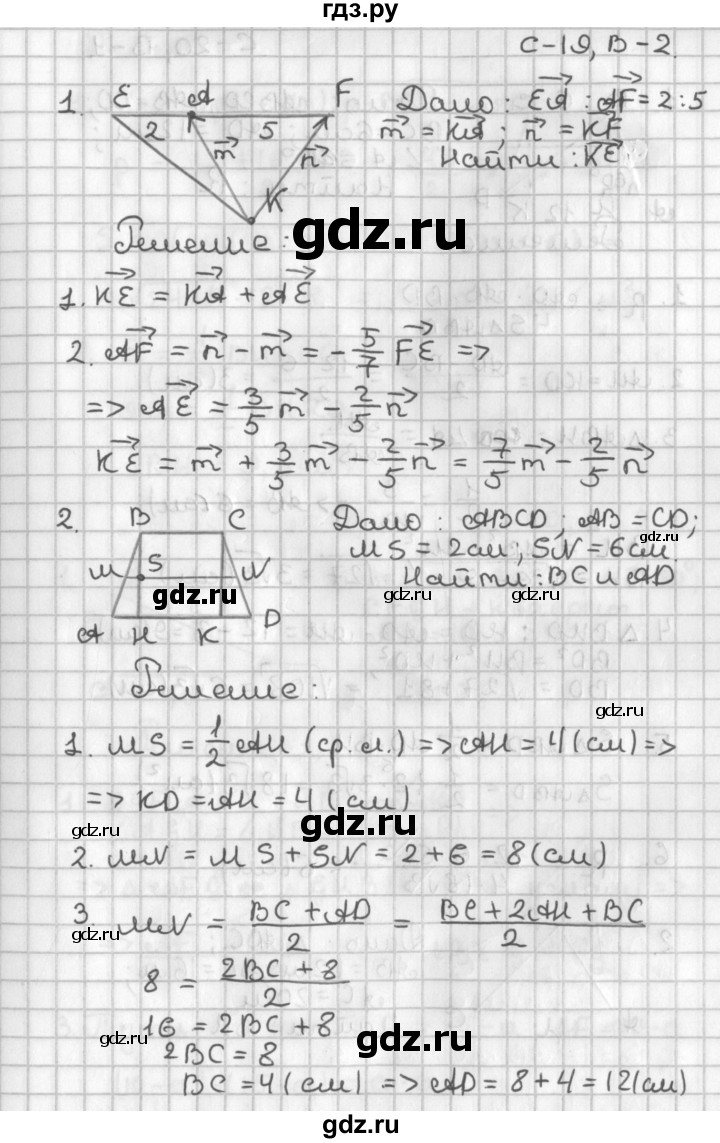 гдз.ру
С-19, В-2.
1.
E A F
2 5
m⃗ n⃗
K
Дано: EA⃗ : AF⃗ = 2:5
m⃗ = KA⃗ ; n⃗ = KF⃗
Найти: KE⃗
gdz.ru
Решение:
1. KE⃗ = KA⃗ + AE⃗
2. AF⃗ = n⃗ - m⃗ = - 5/7 FE⃗ =>
=> AE⃗ = 3/5 m⃗ - 2/5 n⃗
KE⃗ = m⃗ + 3/5 m⃗ - 2/5 n⃗ = 7/5 m⃗ - 2/5 n⃗
2.
B C
M S N
A H K D
gdz.ru
Дано: ABCD; AB = CD;
gdz.ru
MS = 2см; SN = 6см.
Найти: BC и AD
gdz.ru gdz.ru
Решение:
gdz.ru
1. MS = 1/2 AH (ср. л.) => AH = 4 (см) =>
=> KD = AH = 4 (см)
gdz.ru gdz.ru
2. MN = MS + SN = 2 + 6 = 8 (см)
3. MN = (BC + AD)/2 = (BC + 2AH + BC)/2
gdz.ru gdz.ru
8 = (2BC + 8)/2
16 = 2BC + 8
gdz.ru gdz.ru
2BC = 8
BC = 4 (см) => AD = 8 + 4 = 12 (см)
gdz.ru